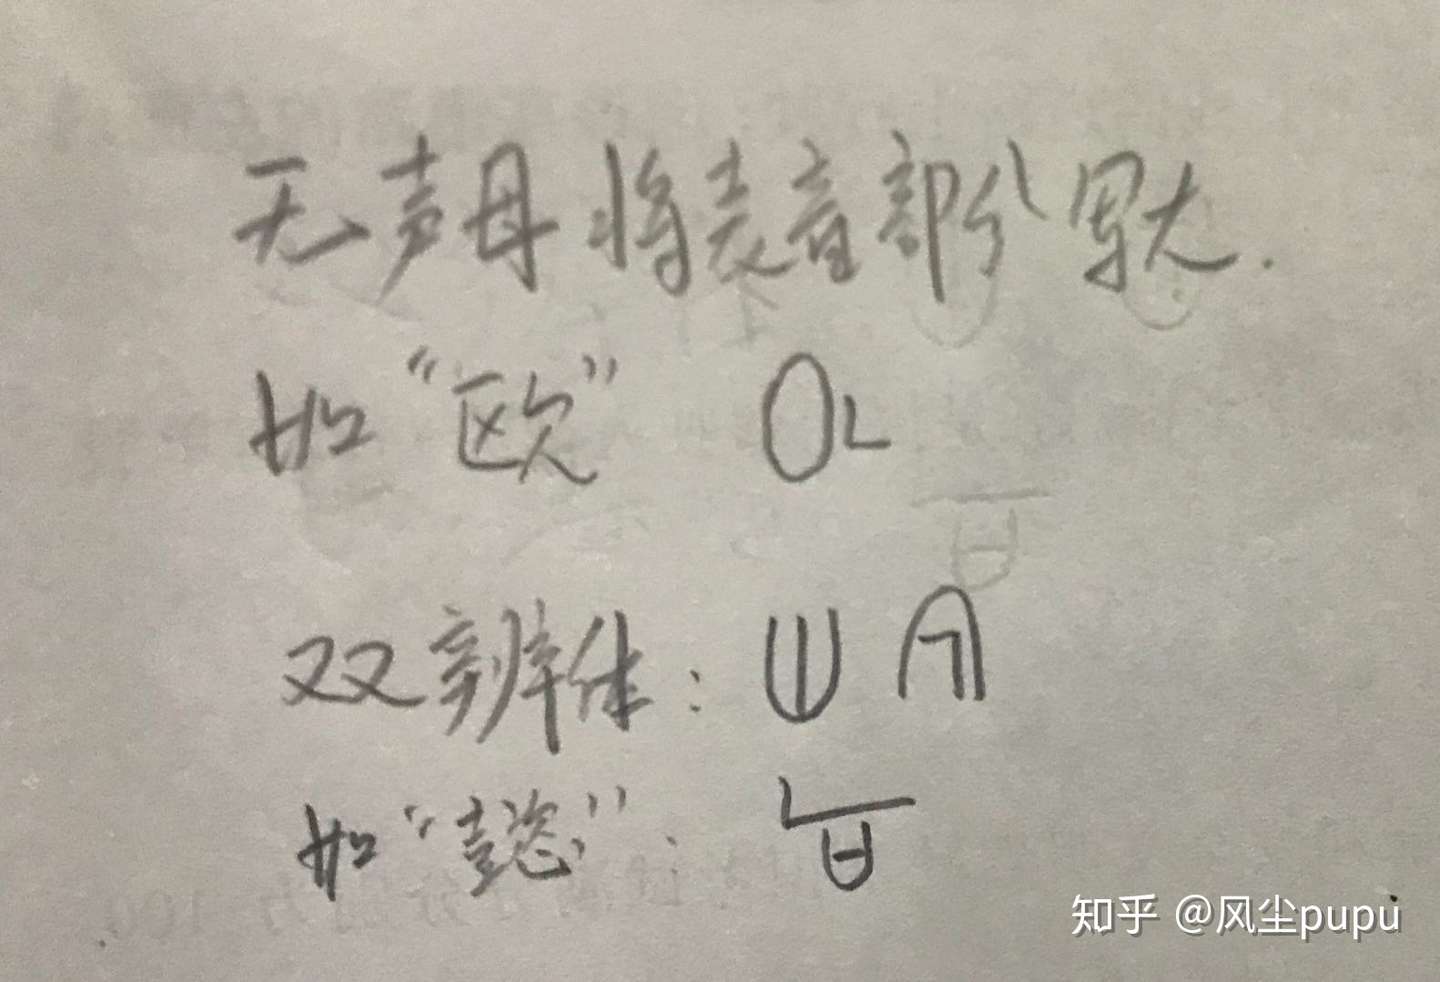 无声母将表音部分写大.
如“欧”
双辨体:
如“懿”:
知乎 @风尘pupu